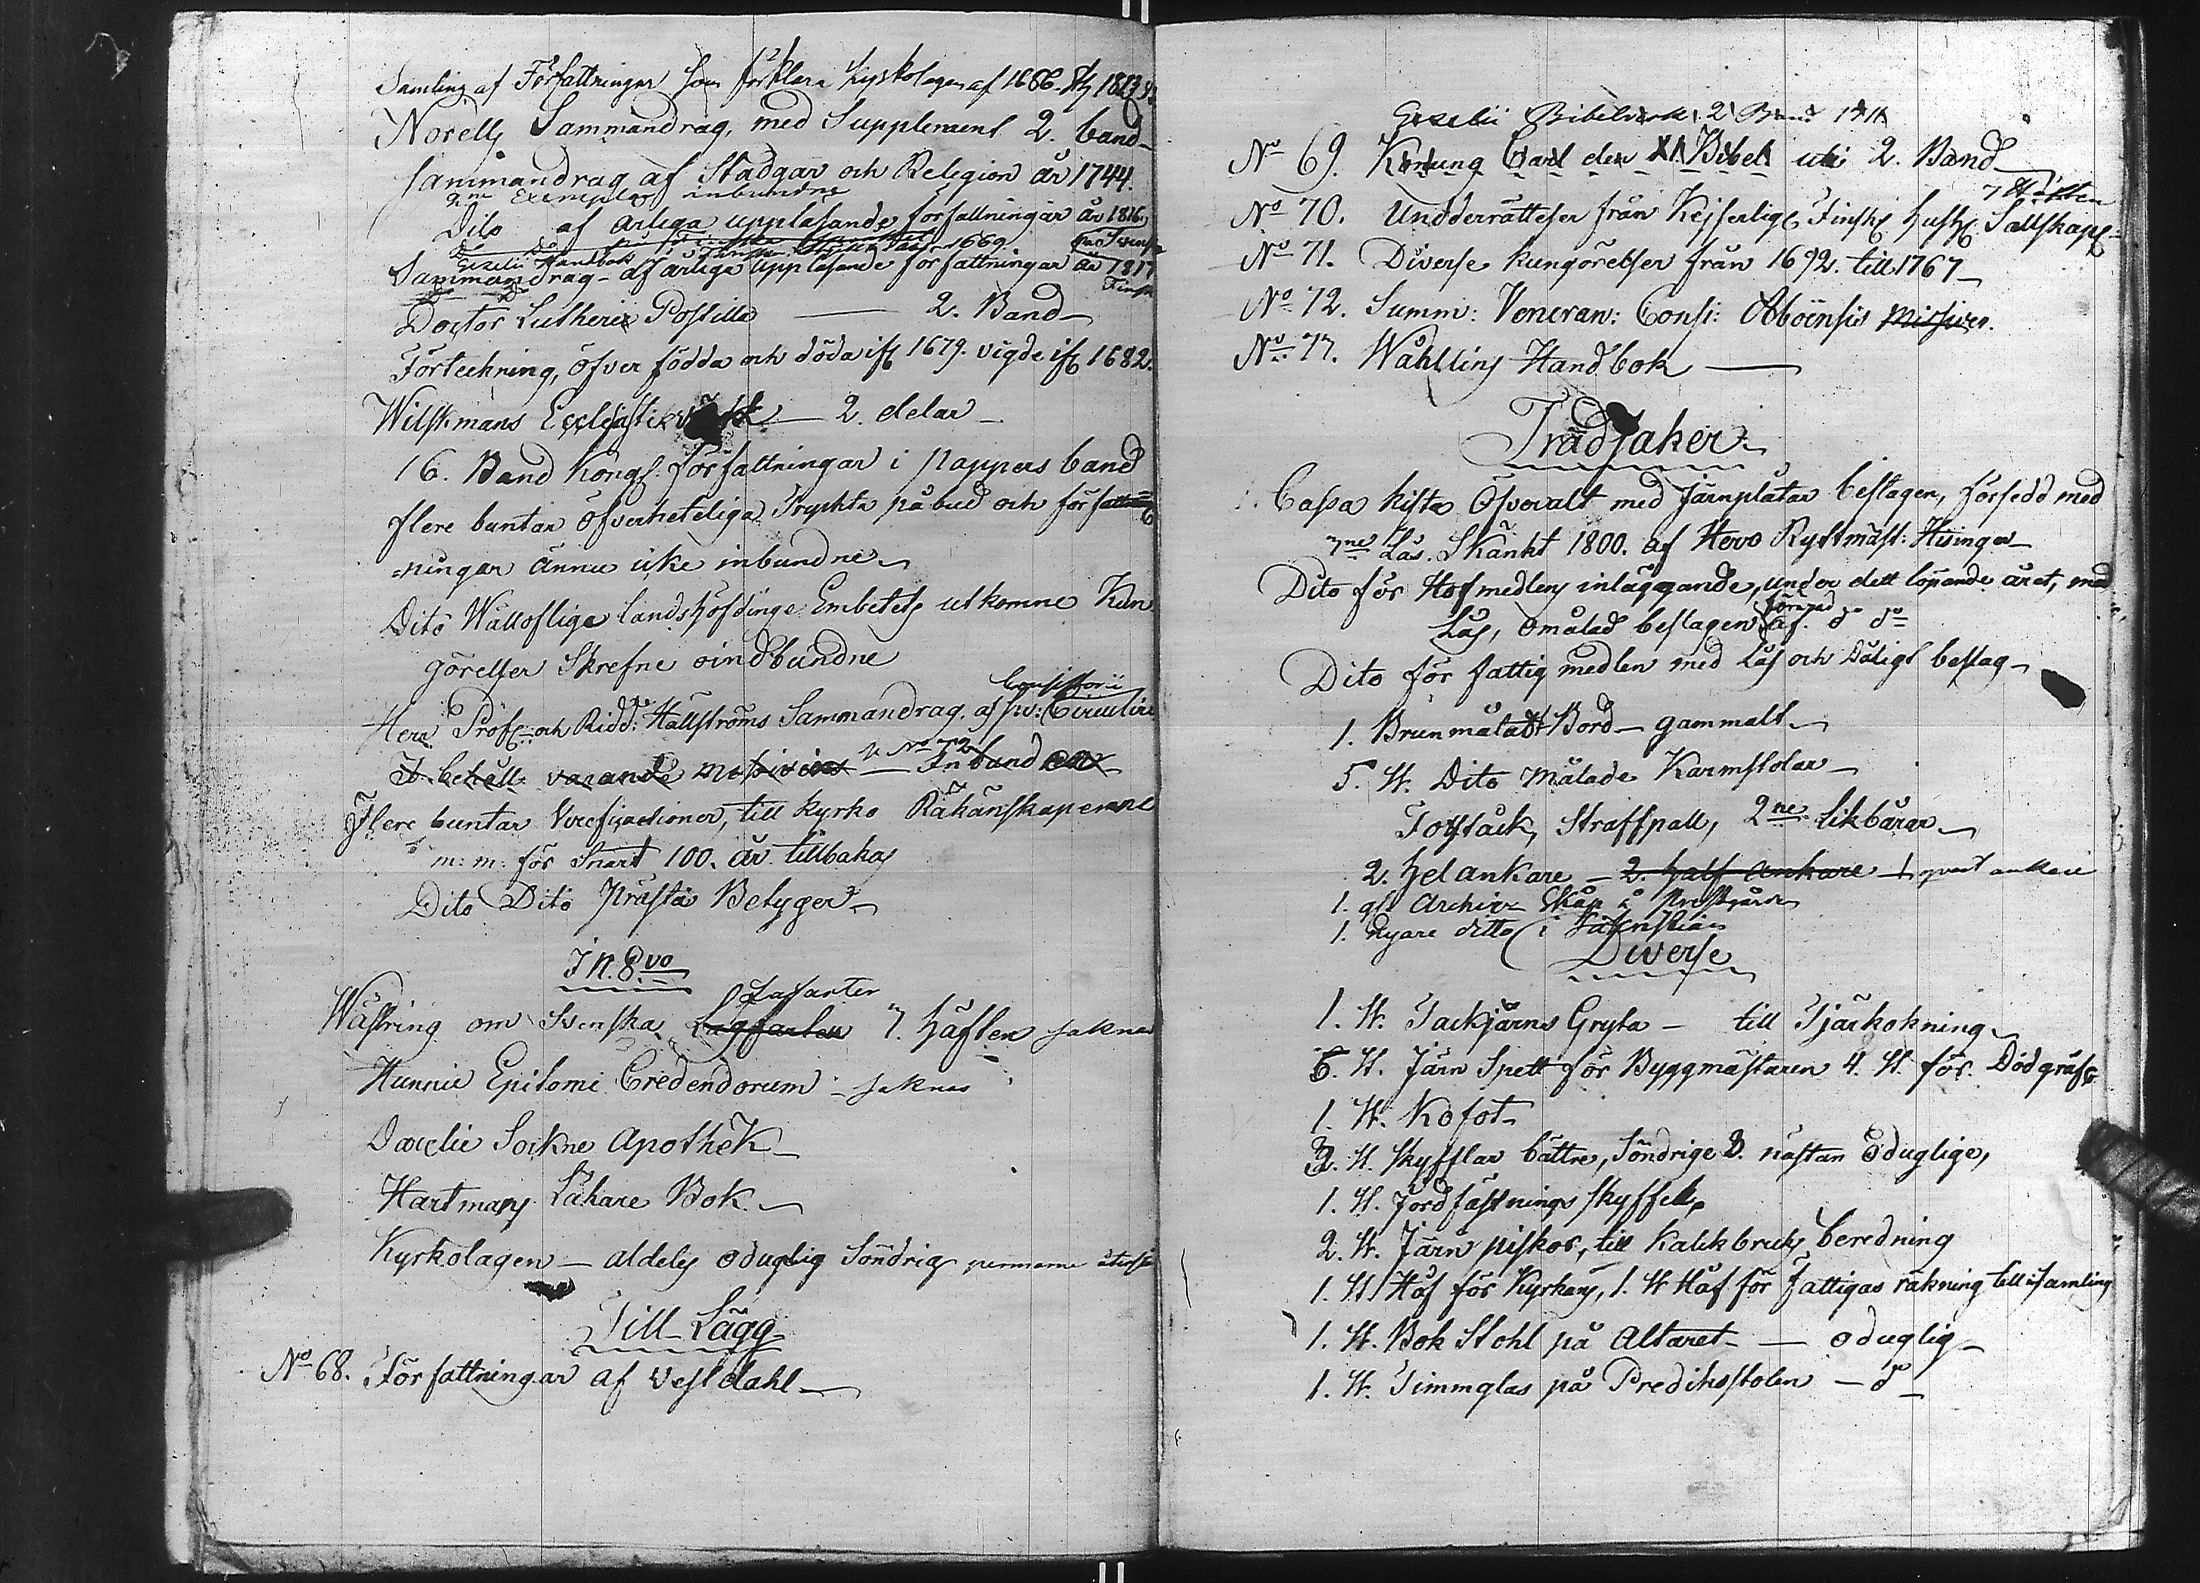 Samling af Författningar som förklara Kyrkolagen af 1686. 1813
Norells Sammandrag, med Supplement 2. band
Sammandrag af Stadgar och Religion år 1744.
2ne Exemplar inbundne
Dito af årliga uppläsande författningar år 1816.
Gezelii Handbok 1669.
Sammandrag af årliga uppläsande författningar år 1817
Finska
Doctor Lutheri Postilla — 2. Band
Förteckning, öfver födda och döda ifr 1679. vigde ifr 1682.
Wilskmans Ecclesastikvärk — 2. delar
16. Band Kongl. författningar i pappers band
flere buntar öfverheteliga Tryckta påbud och författ
ningar ännu icke inbundne
Dito Wälloflige Landshöfdinge Embetets utkomne Kun
görelser Skrefne oindbundne
Consistorii
Herr Prof. och Ridd: Hällströms Sammandrag. af Circuläre
N° 72
I behåll varande Missiver — Inbund
Flere buntar Verefications, till kyrko Räkänskaperne
m: m: för Snart 100. år tillbakas
Dito Dito Prästa Betyger
In. 8vo
Lafarter
Wästring om Svenska Lagfarten 7. häften saknas
Hunnii Epitome Credendorum - saknas
Darelii Sockne Apothek
Hartmans Läkare Bok
Kyrkolagen — aldeles oduglig Söndrig permarne
Till-Lägg
No 68. Författningar af Vestdahl
Gezelii Bibelverk, 2 Band
No 69. Konung Carl den XI Bibel uti 2. Band
7 Häften
No 70. Undderrättelser från Kejserlige Finska hush Sällskape
No 71. Diverse kungörelser från 1692. till 1767
No 72. Summ: Veneran: Cons: Aboënsis Missiver.
No 77. Wåhllins Handbok
Trädsaker
1. Cassa kista Öfveralt med järnplåtar beslagen, försedd med
7ne Lås. Skänkt 1800. af Herr Ryttmäst: Hisinger
Dito för Hofmedlens inläggande, under dett löpande året, med
Lås, omålad beslagen af. do do
Dito för fattig medlen med Lås och Dåligt beslag
1. Brunmåladt Bord — gammalt
5. St. Dito Målade Karmstolar
Fotstäck, Straffpall, 2ne Likbårar
2. helankare — 2. half ankare — 1 qvart ankare
1. gl Archiv Skåp i Prestgården
1. nyare ditto i Sakristian
Diverse
1. St. Tackjärns Gryta — till Tjärkokning
6. St. Järn Spett för Byggmästaren 4. St. för Dödgräf
1. St. Kofot
3. St. skyfflar bättre, Söndrige 3. nästan Oduglige,
1. St. Jordfästnings skyffel
2. St. Järn piskor, till Kalkbruks beredning
1. St Håf för Kyrkans, 1. St Håf för Fattigas räkning till samling
1. St. Bok Stohl på Altaret — oduglig
1. St. Timmglas på Predikostolen — do